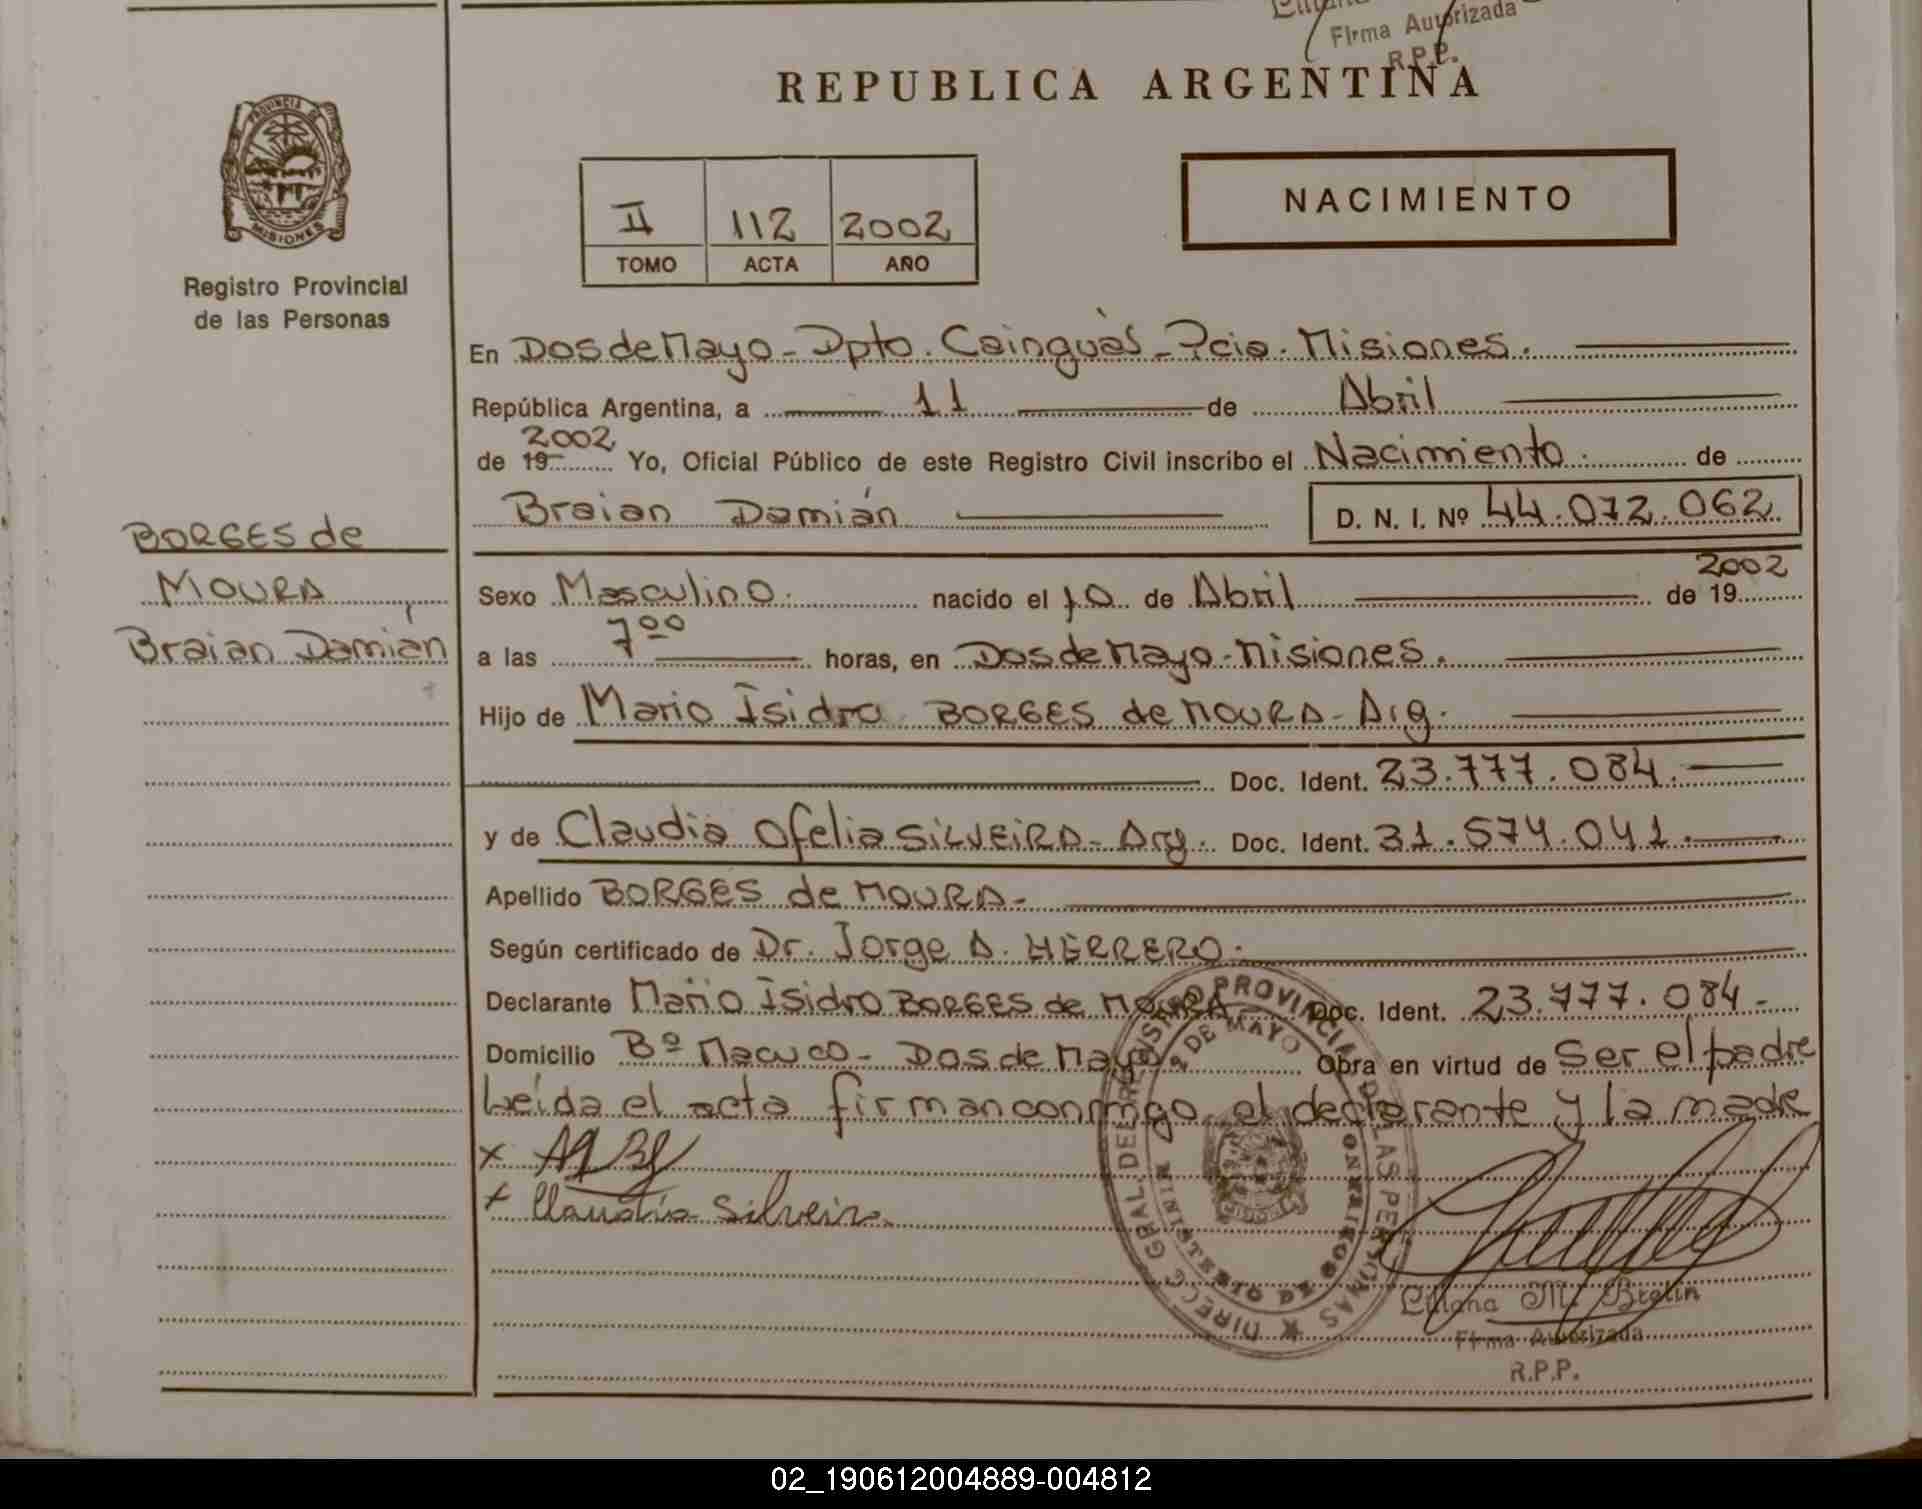 Firma Autorizada
R.P.P.
REPUBLICA ARGENTINA
PROVINCIA DE
MISIONES
Registro Provincial
de las Personas
II 112 2002
TOMO ACTA AÑO
NACIMIENTO
En Dos de Mayo - Dpto. Cainguás - Pcia. Misiones.
República Argentina, a 11 de Abril
de 19 2002 Yo, Oficial Público de este Registro Civil inscribo el Nacimiento. de
Braian Damián D. N. I. Nº 44.072.062
BORGES de
MOURA
Braian Damián
Sexo Masculino. nacido el 10 de Abril de 19 2002
a las 7 00 horas, en Dos de Mayo - Misiones.
Hijo de Mario Isidro BORGES de MOURA - Arg.
Doc. Ident. 23.777.084.
y de Claudia Ofelia SILVEIRA - Arg. Doc. Ident. 31.574.041.
Apellido BORGES de MOURA -
Según certificado de Dr. Jorge A. HERRERO.
Declarante Mario Isidro BORGES de MOURA Doc. Ident. 23.777.084 -
Domicilio Bº Macuco - Dos de Mayo Obra en virtud de Ser el padre
Leída el acta firman conmigo el declarante y la madre
x
x Claudia Silveira
DIREC. GRAL. DEL REGISTRO PROVINCIAL DE LAS PERSONAS
2 DE MAYO
MINISTERIO DE GOBIERNO
Liliana M. Brelin
Firma Autorizada
R.P.P.
02_190612004889-004812